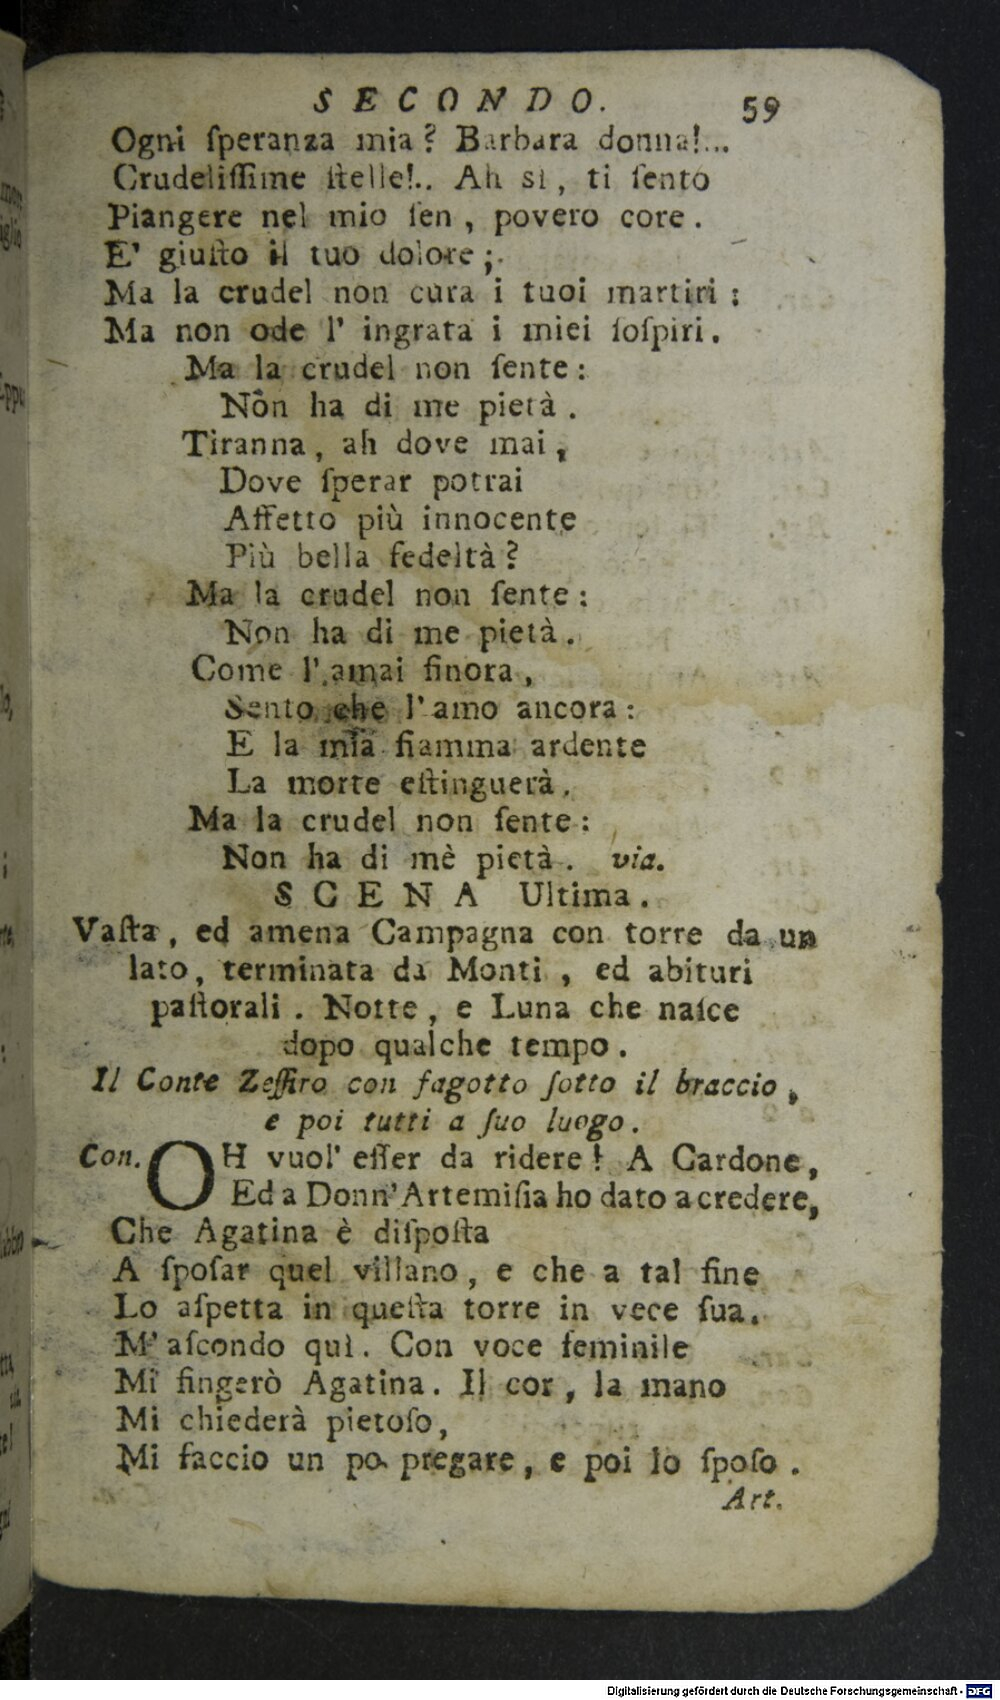 SECONDO. 59
Ogni ſperanza mia? Barbara donna!...
Crudeliſſime ſtelle!.. Ah sì, ti ſento
Piangere nel mio ſen, povero core.
E' giuſto il tuo dolore;
Ma la crudel non cura i tuoi martiri:
Ma non ode l' ingrata i miei ſoſpiri.
Ma la crudel non ſente:
Non ha di me pietà.
Tiranna, ah dove mai,
Dove ſperar potrai
Affetto più innocente
Più bella fedeltà?
Ma la crudel non ſente:
Non ha di me pietà.
Come l' amai finora,
Sento che l' amo ancora:
E la mia fiamma ardente
La morte eſtinguerà.
Ma la crudel non ſente:
Non ha di mè pietà. via.
SCENA Ultima.
Vaſta, ed amena Campagna con torre da un
lato, terminata da Monti, ed abituri
paſtorali. Notte, e Luna che naſce
dopo qualche tempo.
Il Conte Zeffiro con fagotto ſotto il braccio,
e poi tutti a ſuo luogo.
Con. OH vuol' eſſer da ridere! A Cardone,
Ed a Donn' Artemiſia ho dato a credere,
Che Agatina è diſpoſta
A ſpoſar quel villano, e che a tal fine
Lo aſpetta in queſta torre in vece ſua.
M' aſcondo quì. Con voce feminile
Mi fingerò Agatina. Il cor, la mano
Mi chiederà pietoſo,
Mi faccio un po pregare, e poi lo ſpoſo.
Art.
Digitalisierung gefördert durch die Deutsche Forschungsgemeinschaft - DFG